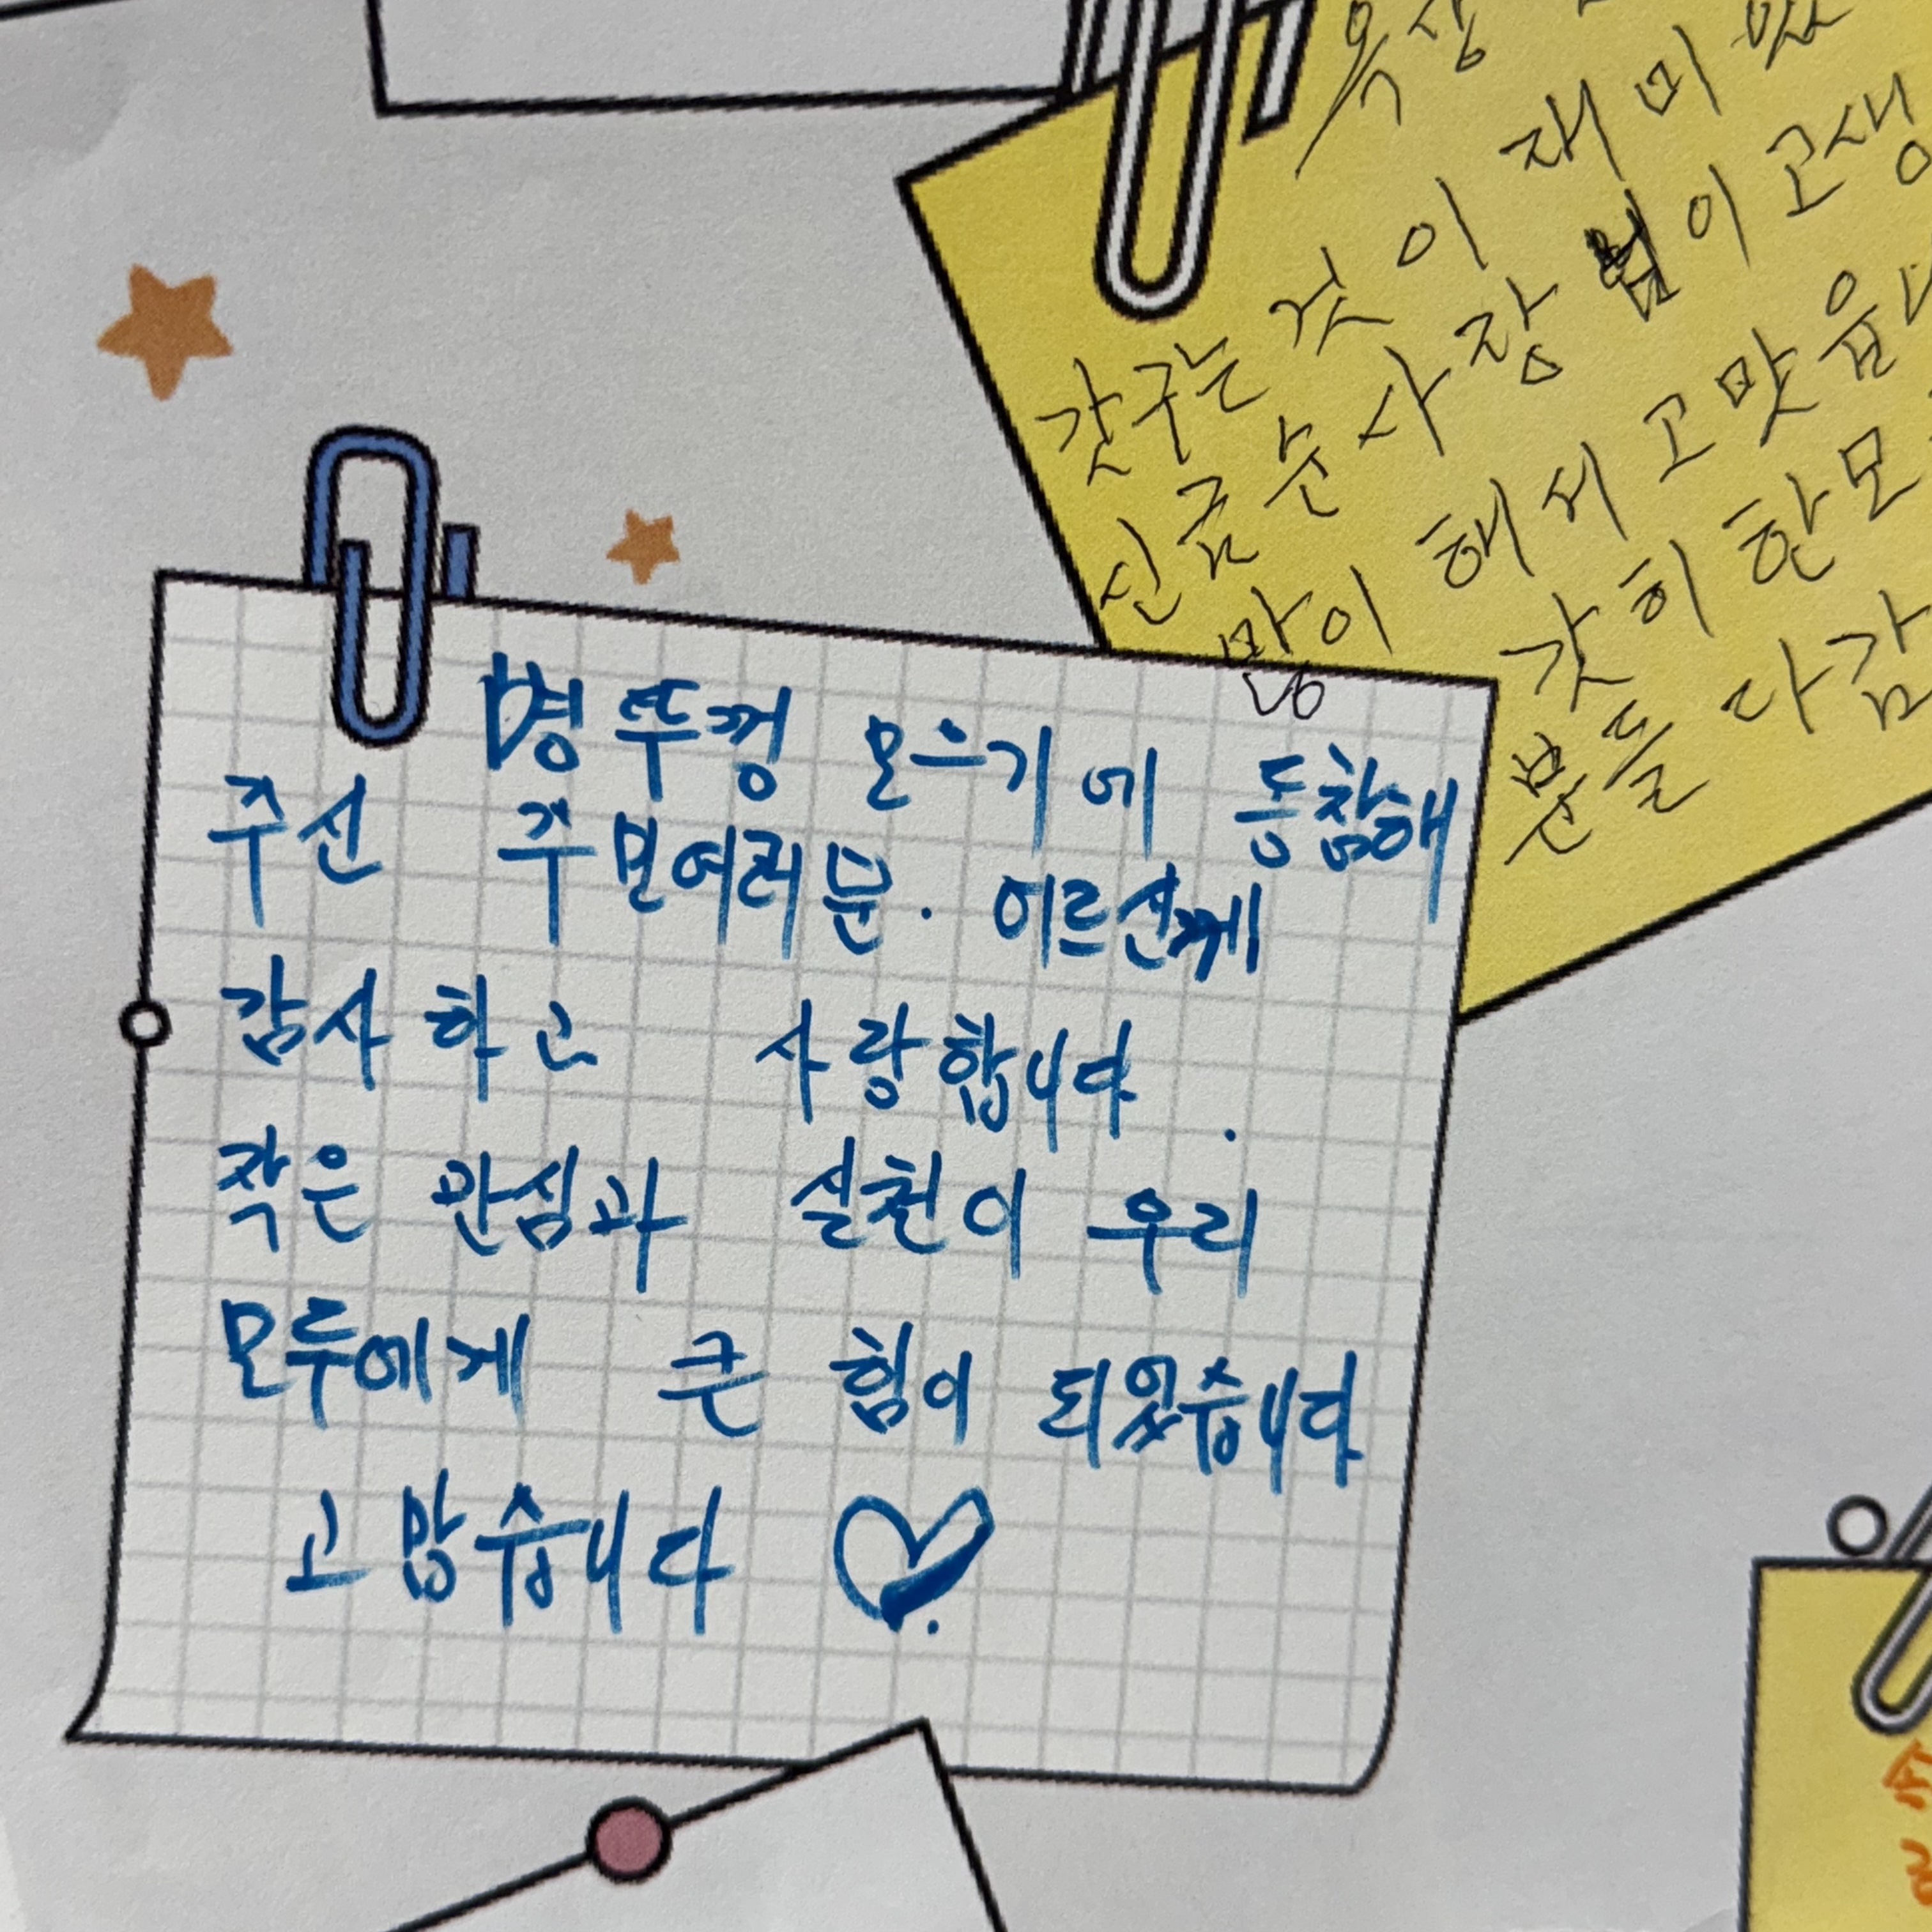 옥상
가꾸는 것이 재미있
신금순 사장님이 고생
많이 해서 고맛읍니
갓히 한모
분들 다감
병뚜껑 모으기에 동참해
주신 주민여러분. 어르신께
감사하고 사랑합니다.
작은 관심과 실천이 우리
모두에게 큰 힘이 되었습니다
고맙습니다 ♡.